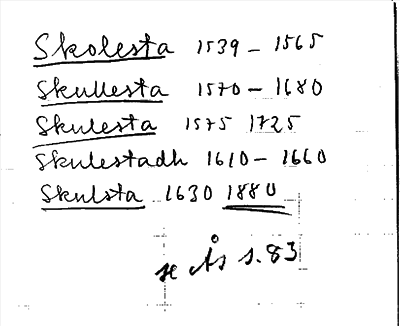 Skolesta 1539 - 1565
Skullesta 1570 - 1680
Skulesta 1575 1725
Skulestadh 1610 - 1660
Skulsta 1630 1880
se Ås s. 83